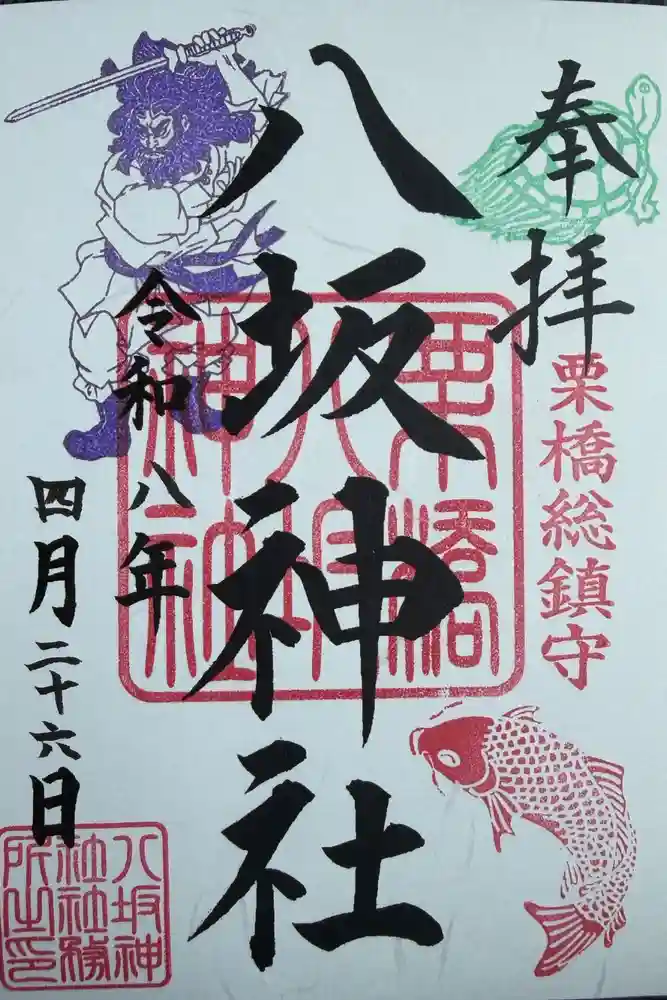 奉拝
栗橋総鎮守
八坂神社
令和八年
四月二十六日
栗橋
八坂
神社
八坂神
社社務
所之印